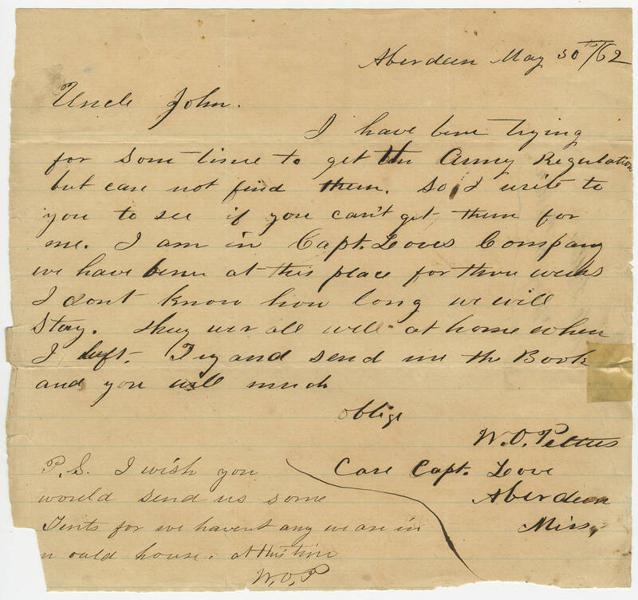 Aberdeen May 30th/62
Uncle John.
I have bene trying
for som time to get the Army Regulation
but can not find them. So I write to
you to see if you can't get them for
me. I am in Capt. Loves Company
we have bene at this place for three weeks
I dont know how long we will
Stay. They wer all well at home when
I left. Try and send me the Book
and you will much
oblige
W. O. Pettus
Care Capt. Love
Aberdeen
Miss,
P.S. I wish you
would send us some
Tents for we havent any we are in
ould house. at this time
W. O. P